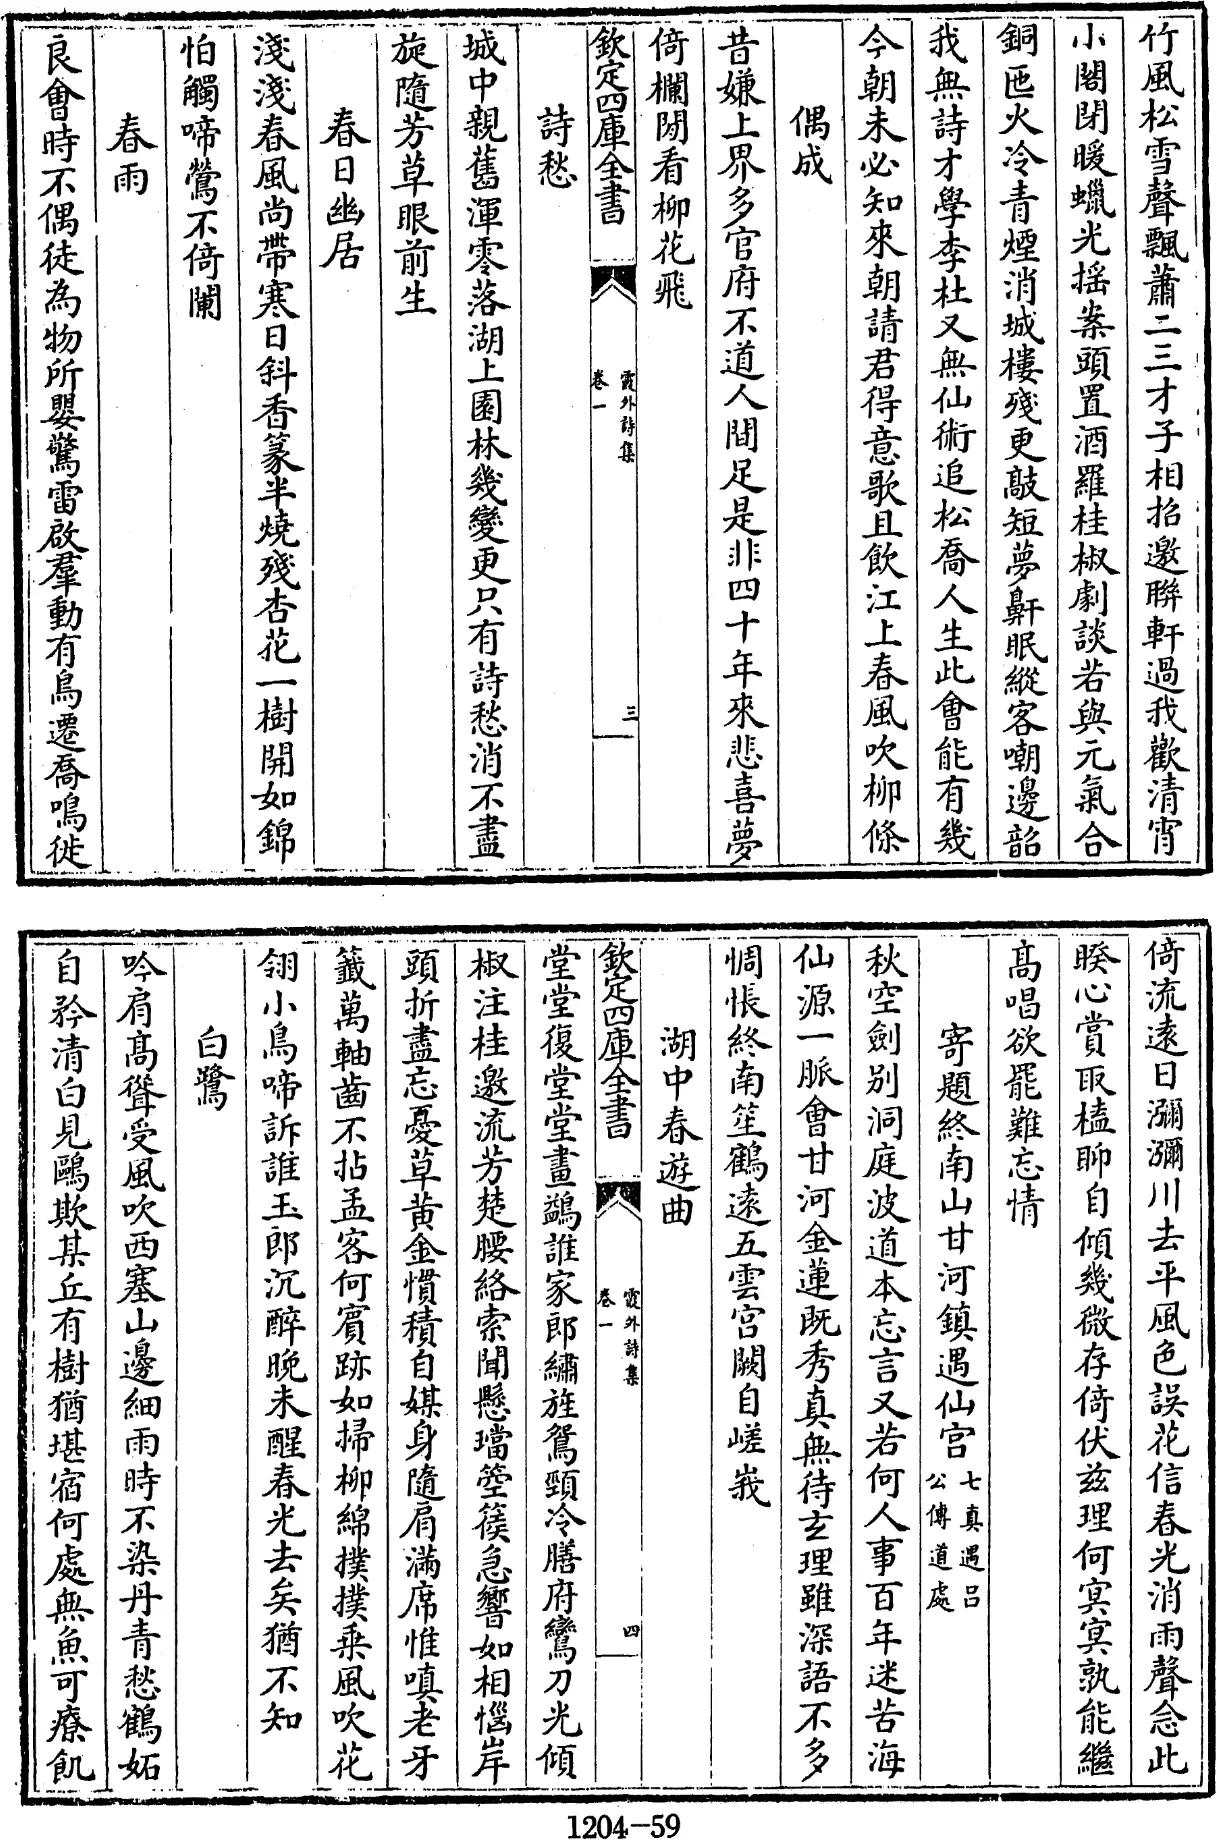 竹風松雪聲飄蕭二三才子相招邀聯軒過我歡清宵
小閣閉暖蠟光揺案頭置酒羅桂椒劇談若與元氣合
銅匜火冷青煙消城樓殘更敲短夢鼾眠縱客嘲邊韶
我無詩才學李杜又無仙術追松喬人生此會能有幾
今朝未必知來朝請君得意歌且飲江上春風吹柳條
偶成
昔嫌上界多官府不道人間足是非四十年來悲喜夢
倚欄閒看柳花飛
欽定四庫全書
霞外詩集
卷一
三
詩愁
城中親舊渾零落湖上園林幾變更只有詩愁消不盡
旋隨芳草眼前生
春日幽居
淺淺春風尚帶寒日斜香篆半燒殘杏花一樹開如錦
怕觸啼鶯不倚闌
春雨
良會時不偶徒為物所嬰驚雷啟羣動有鳥遷喬鳴徙
倚流遠日瀰瀰川去平風色誤花信春光消雨聲念此
暌心賞取榼聊自傾幾微存倚伏兹理何冥冥孰能繼
高唱欲罷難忘情
寄題終南山甘河鎮遇仙宮
七真遇呂
公傳道處
秋空劍別洞庭波道本忘言又若何人事百年迷苦海
仙源一脈會甘河金蓮既秀真無待玄理雖深語不多
惆悵終南笙鶴遠五雲宮闕自嵯峩
湖中春遊曲
欽定四庫全書
霞外詩集
卷一
四
堂堂復堂堂畫鷁誰家郎繡旌鴛頸冷膳府鸞刀光傾
椒注桂邀流芳楚腰絡索聞懸璫箜篌急響如相惱岸
頭折盡忘憂草黄金慣積自媒身隨肩滿席惟嗔老牙
籤萬軸齒不拈孟客何賓跡如掃柳綿撲撲乗風吹花
翎小鳥啼訴誰玉郎沉醉晚未醒春光去矣猶不知
白鷺
吟肩高聳受風吹西塞山邊細雨時不染丹青愁鶴妬
自矜清白見鷗欺某丘有樹猶堪宿何處無魚可療飢
1204-59